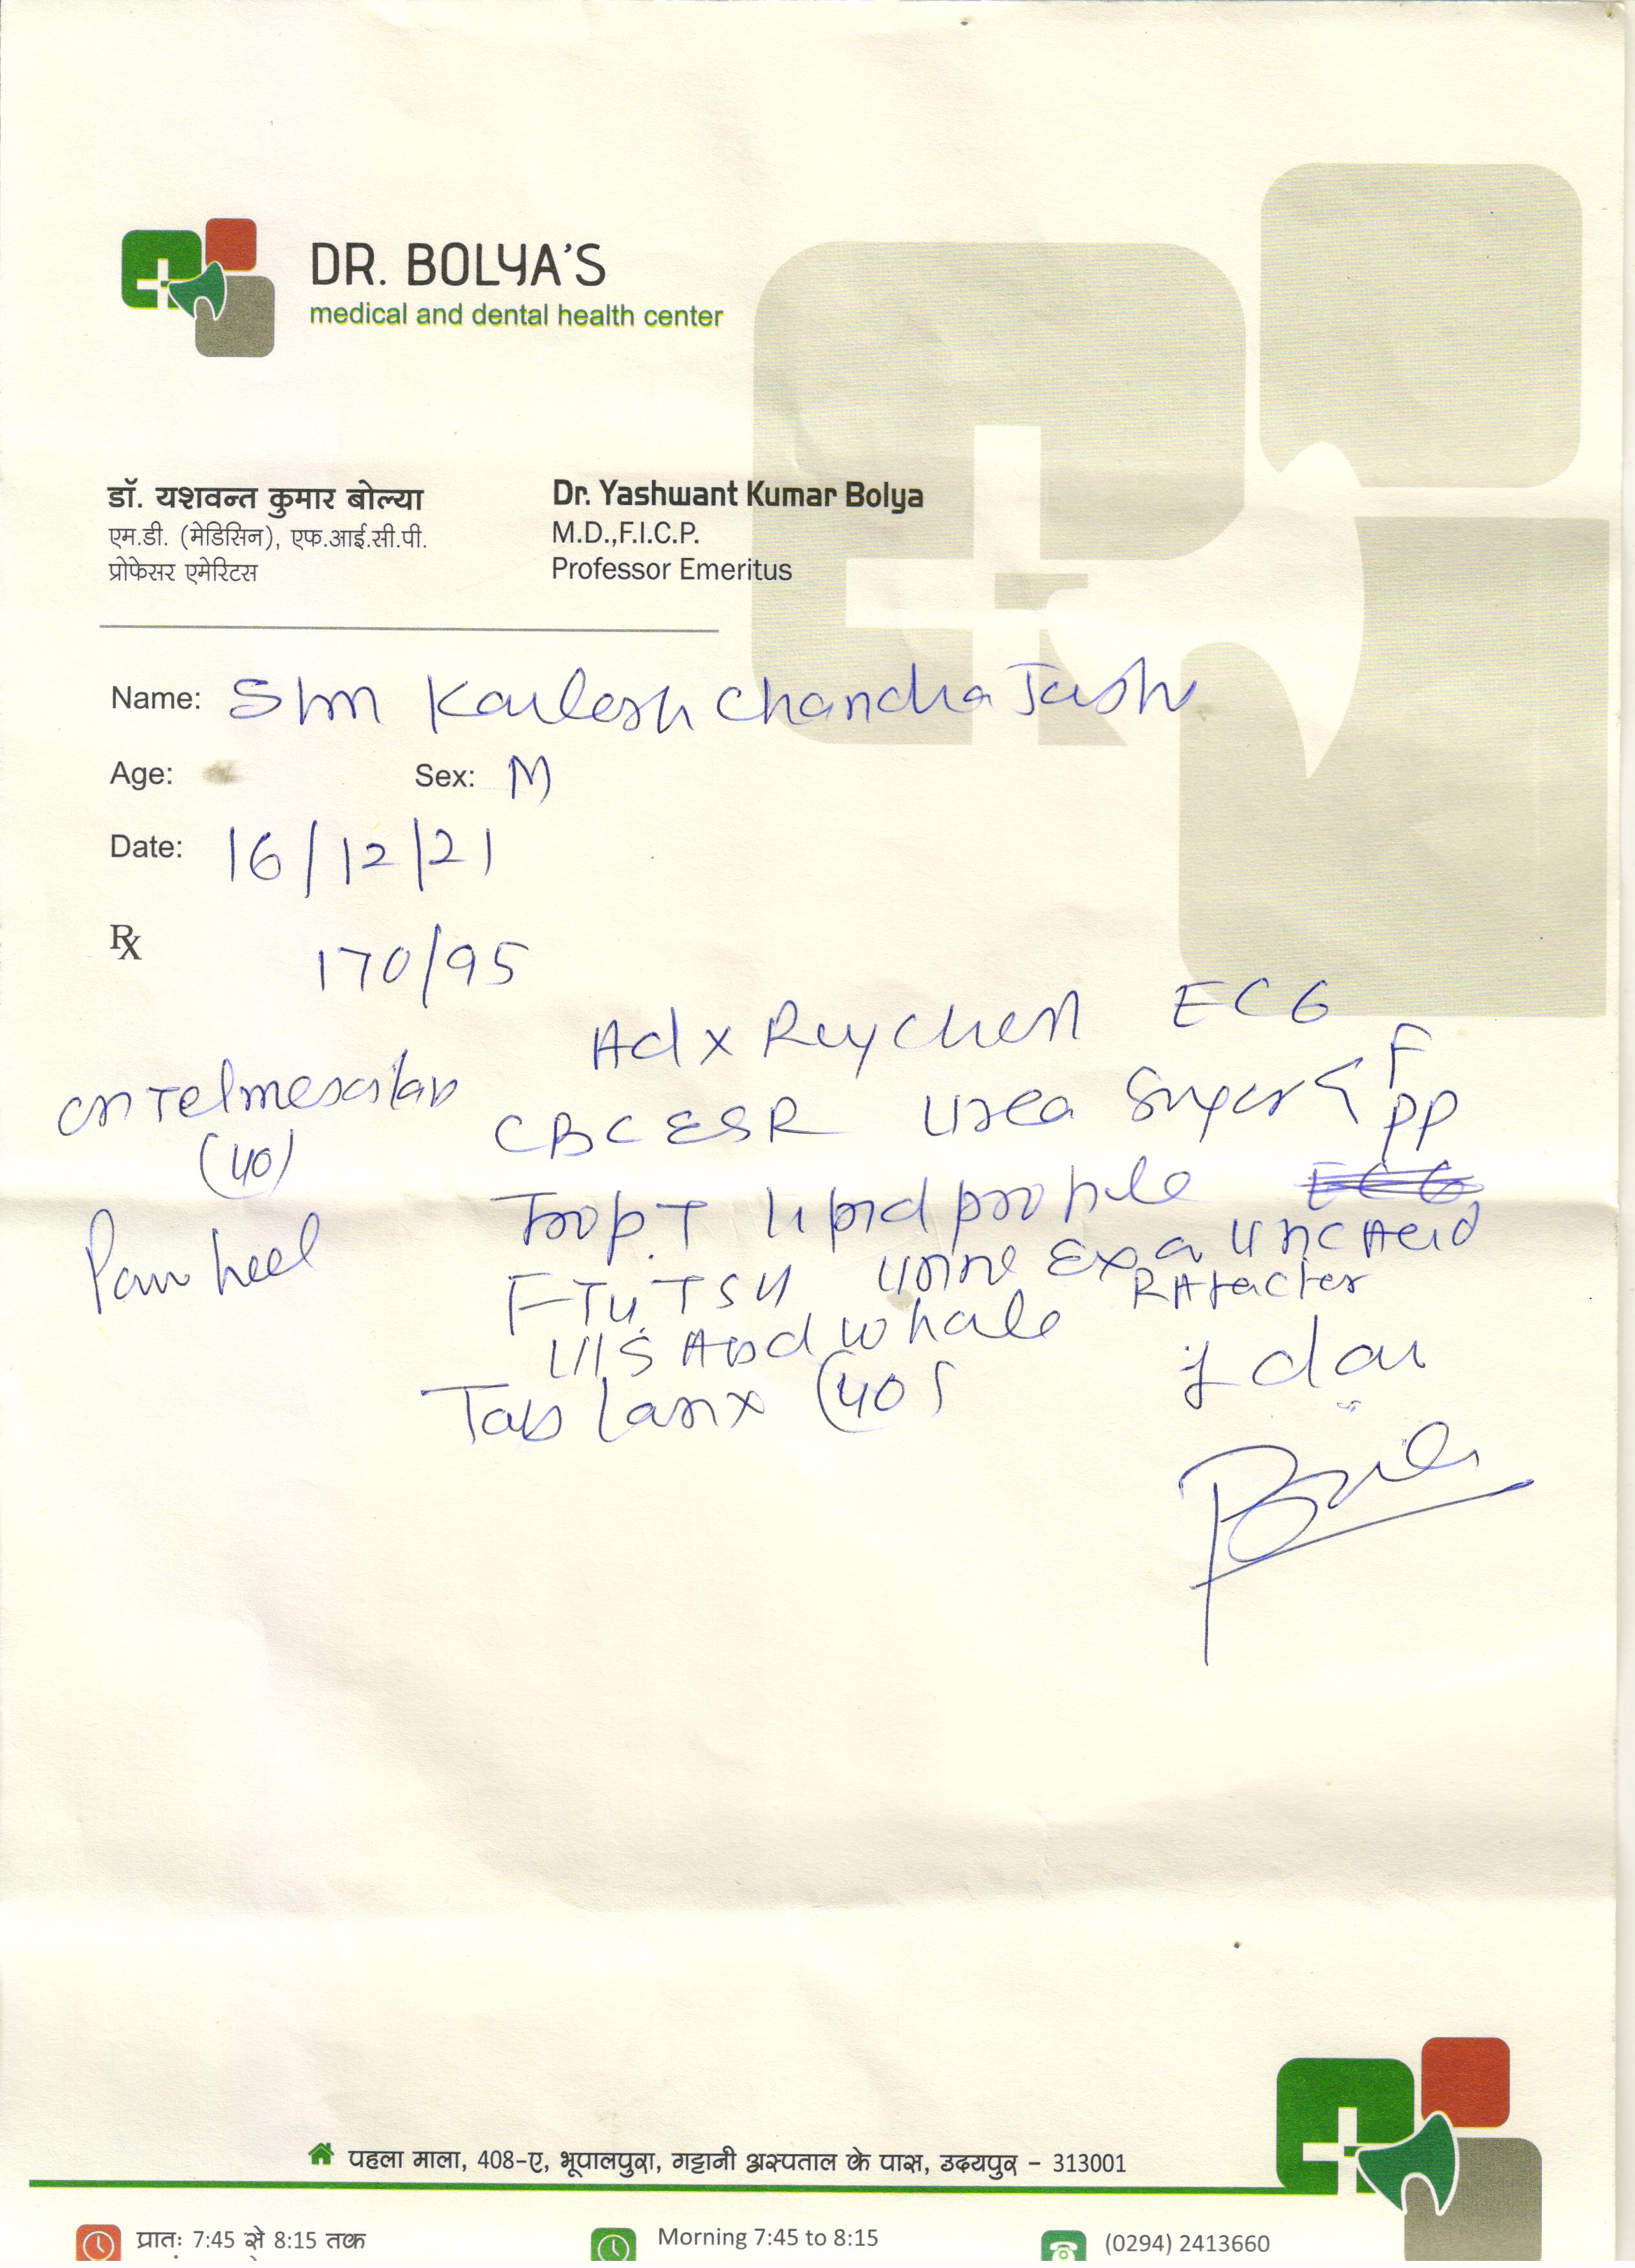 DR. BOLYA'S
medical and dental health center
डॉ. यशवन्त कुमार बोल्या
एम.डी. (मेडिसिन), एफ.आई.सी.पी.
प्रोफेसर एमेरिटस
Dr. Yashwant Kumar Bolya
M.D.,F.I.C.P.
Professor Emeritus
Name: Shri Kailesh Chandra Joshi
Age: Sex: M
Date: 16/12/21
Rx
170/95
Ad x Ray Chest ECG
on Telmesartan
(40)
Pain heel
CBC ESR Urea Sugar < F
PP
Trop. T lipid profile
Urine Exa Uric Acid
TSH
RA factor
U/S Abd whole
Tab (40)
पहला माला, 408-ए, भूपालपुरा, गट्टानी अस्पताल के पास, उदयपुर - 313001
प्रातः 7:45 से 8:15 तक
Morning 7:45 to 8:15
(0294) 2413660